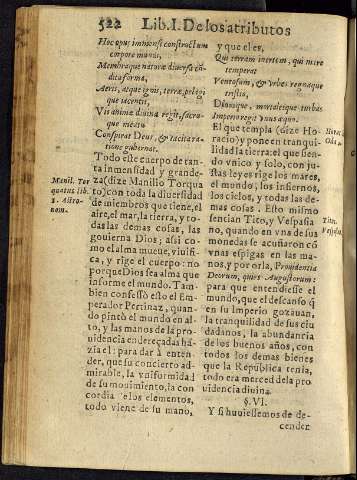 522 Lib. I. De los atributos
Hoc opus immensi constructum
corpore mundi,
Membraque naturæ diuersa cõ-
dita forma,
Aeris, atque ignis, terræ, pelagi
que iacentis,
Vis animæ diuina regit, sacro-
que meatu
Conspirat Deus, & tacita ra-
tione gubernat.
Todo este cuerpo de tan-
ta inmensidad y grande-
za (dize Manilio Torqua
to) con toda la diuersidad
de miembros que tiene, el
aire, el mar, la tierra, y to-
das las demas cosas, las
gouierna Dios; assi co-
mo el alma mueue, viuifi-
ca, y rige el cuerpo: no
porque Dios sea alma que
informe el mundo. Tam-
bien confessò esto el Em-
perador Pertinaz, quan-
do pintò el mundo en al-
to, y las manos de la pro-
uidencia endereçadas há-
zia el: para dar à enten-
der, que su concierto ad-
mirable, la vniformidad
de su mouimiento, la con-
cordia de los elementos,
todo viene de su mano,
Manil. Tor
quatus lib.
1. Astro-
nom.
y que el es,
Qui terram inertem, qui mare
temperat
Ventosum, & vrbes regnaque
tristia,
Diuosque, mortaleisque turbas
Imperio regit vnus æquo.
El que templa (dize Ho-
racio) y pone en tranqui-
lidad la tierra: el que sien-
do vnico y solo, con ju-
stas leyes rige los mares,
el mundo, los infiernos,
los cielos, y todas las de-
mas cosas. Esto mismo
sentian Tito, y Vespasia
no, quando en vna de sus
monedas se acuñaron có
vnas espigas en las ma-
nos, y por orla, Prouidentia
Deorum, quies Augustorum:
para que entendiesse el
mundo, que el descanso q̃
en su Imperio gozauan,
la tranquilidad de sus ciu
dadanos, la abundancia
de los buenos años, con
todos los demas bienes
que la Republica tenia,
todo era merced de la pro
uidencia diuina.
§. VI.
Y si huuiessemos de de-
cender